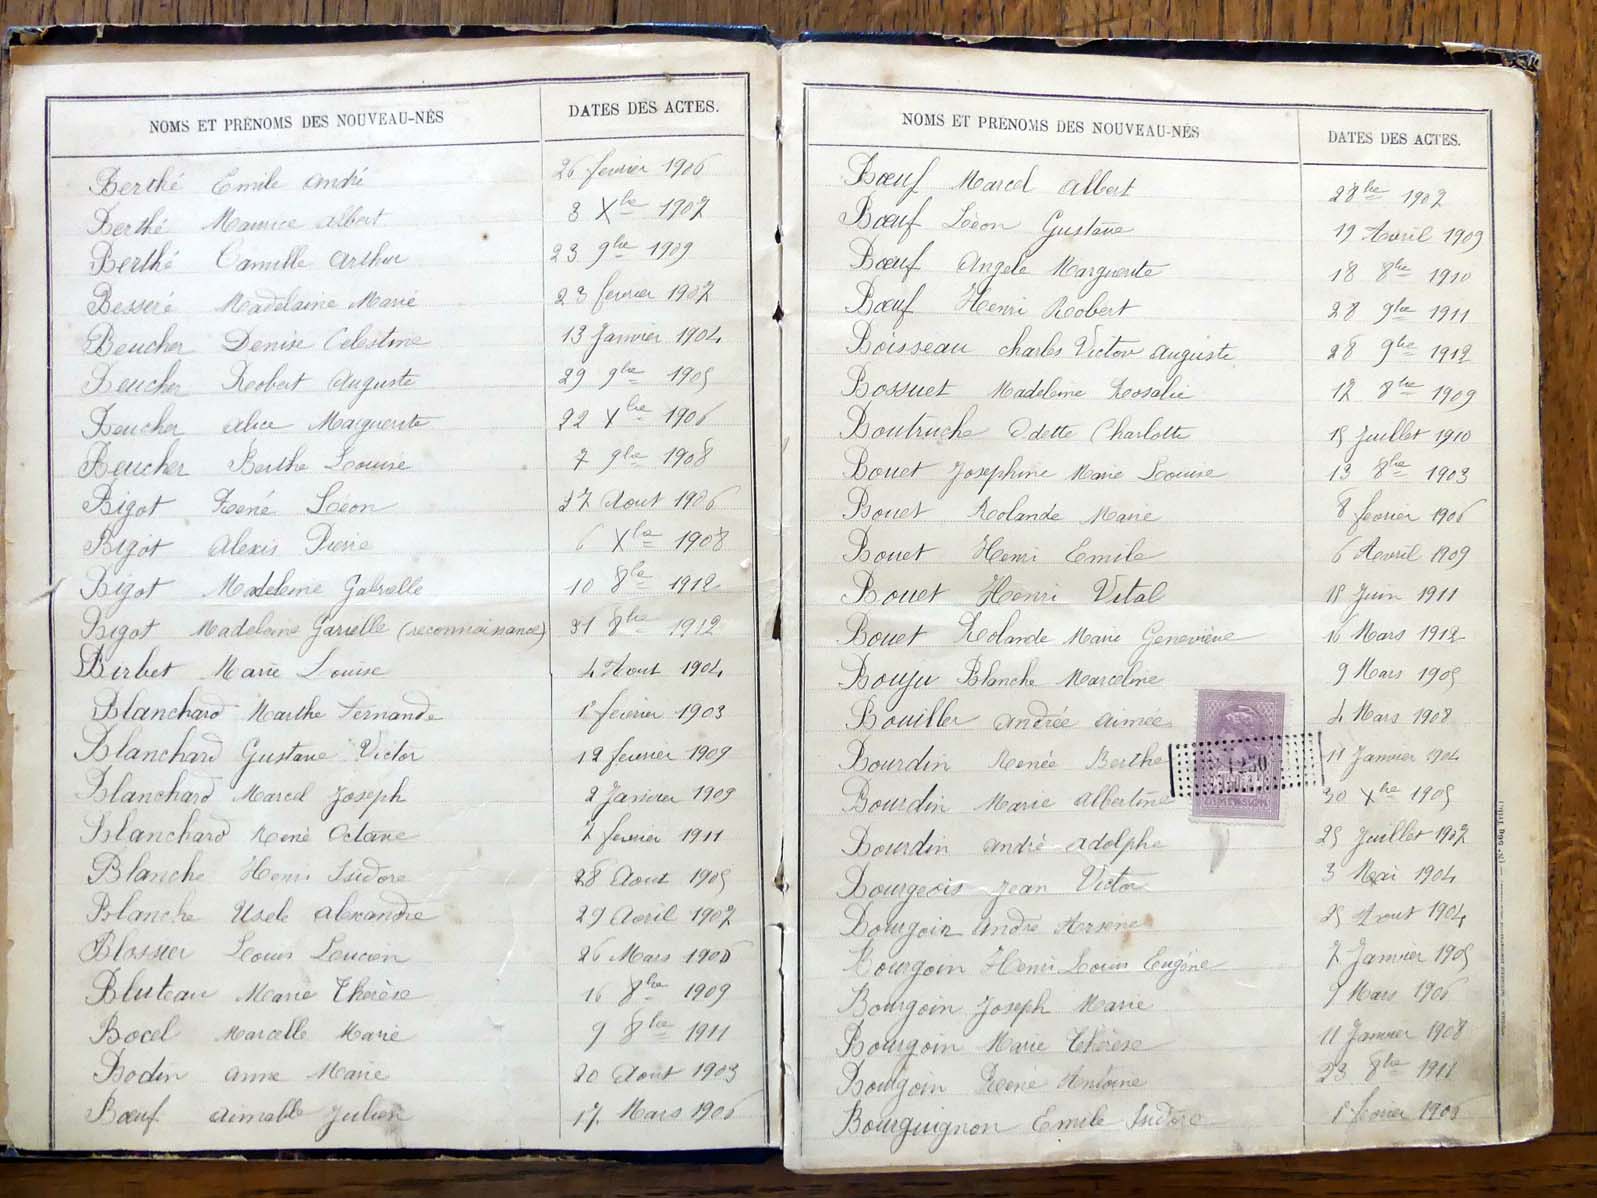 NOMS ET PRÉNOMS DES NOUVEAU-NÉS DATES DES ACTES.
Berthé Emile André 26 février 1906
Berthé Maurice Albert 3 Xbre 1907
Berthé Camille Arthur 23 9bre 1909
Besseré Madelaine Marie 23 février 1907
Beucher Denise Celestine 13 Janvier 1904
Beucher Robert Auguste 29 9bre 1905
Beucher Alice Marguerite 22 Xbre 1906
Beucher Berthe Louise 7 9bre 1908
Bigot René Léon 27 Aout 1906
Bigot Alexis Pierre 6 Xbre 1908
Bigot Madeleine Gabrielle 10 8bre 1912
Bigot Madeleine Garielle (reconnaissance) 31 8bre 1912
Birbet Marie Louise 4 Aout 1904
Blanchard Marthe Fernande 1r février 1903
Blanchard Gustave Victor 12 février 1909
Blanchard Marcel Joseph 2 Janvier 1909
Blanchard René Octave 2 février 1911
Blanche Henri Isidore 28 Aout 1905
Blanche Alexandre 29 Avril 1907
Blossier Louis Lucien 26 Mars 1906
Bluteau Marie Thérèse 16 8bre 1909
Bocel Marcelle Marie 9 8bre 1911
Bodin Anne Marie 20 Aout 1903
Bœuf Aimable Julien 17 Mars 1906
NOMS ET PRÉNOMS DES NOUVEAU-NÉS DATES DES ACTES.
Bœuf Marcel Albert 28bre 1907
Bœuf Léon Gustave 19 Avril 1909
Bœuf Angele Marguerite 18 8bre 1910
Bœuf Henri Robert 28 9bre 1911
Boisseau Charles Victor Auguste 28 9bre 1912
Bossuet Madeleine Rosalie 12 8bre 1909
Boutruche Odette Charlotte 15 Juillet 1910
Bouet Josephine Marie Louise 13 8bre 1903
Bouet Rolande Marie 8 février 1906
Bouet Henri Emile 6 Avril 1909
Bouet Henri Vital 15 Juin 1911
Bouet Rolande Marie Geneviève 16 Mars 1912
Bouju Blanche Marceline 9 Mars 1905
Bouiller Andrée Aimée 4 Mars 1908
Bourdin Renée Berthe 11 Janvier 1904
Bourdin Marie Albertine 30 Xbre 1905
DIMENSION
Bourdin André Adolphe 25 Juillet 1907
Bourgeois Jean Victor 3 Mai 1904
Bourgoin André Arsène 25 Aout 1904
Bourgoin Henri Louis Eugène 7 Janvier 1905
Bourgoin Joseph Marie 9 Mars 1906
Bourgoin Marie Thérèse 11 Janvier 1908
Bourgoin René Antoine 23 8bre 1911
Bourguignon Emile Isidore 1r février 1906